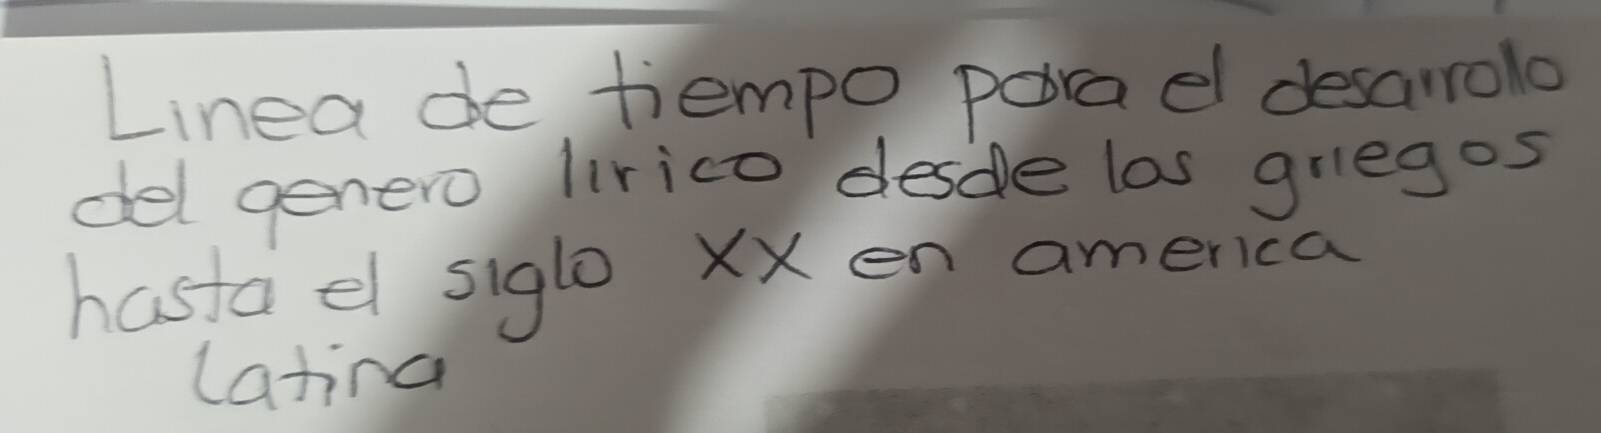 Linea de tiempo para el desarrollo
del genero lirico desde los griegos
hasta el siglo XX en america
latina